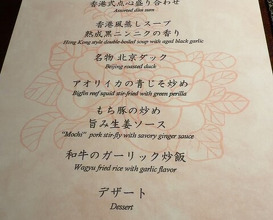 香港式点心盛り合わせ
Assorted dim sum
香港風蒸しスープ
熟成黒ニンニクの香り
Hong Kong style double-boiled soup with aged black garlic
名物 北京ダック
Beijing roasted duck
アオリイカの青じそ炒め
Bigfin reef squid stir-fried with green perilla
もち豚の炒め
旨み生姜ソース
"Mochi" pork stir-fly with savory ginger sauce
和牛のガーリック炒飯
Wagyu fried rice with garlic flavor
デザート
Dessert